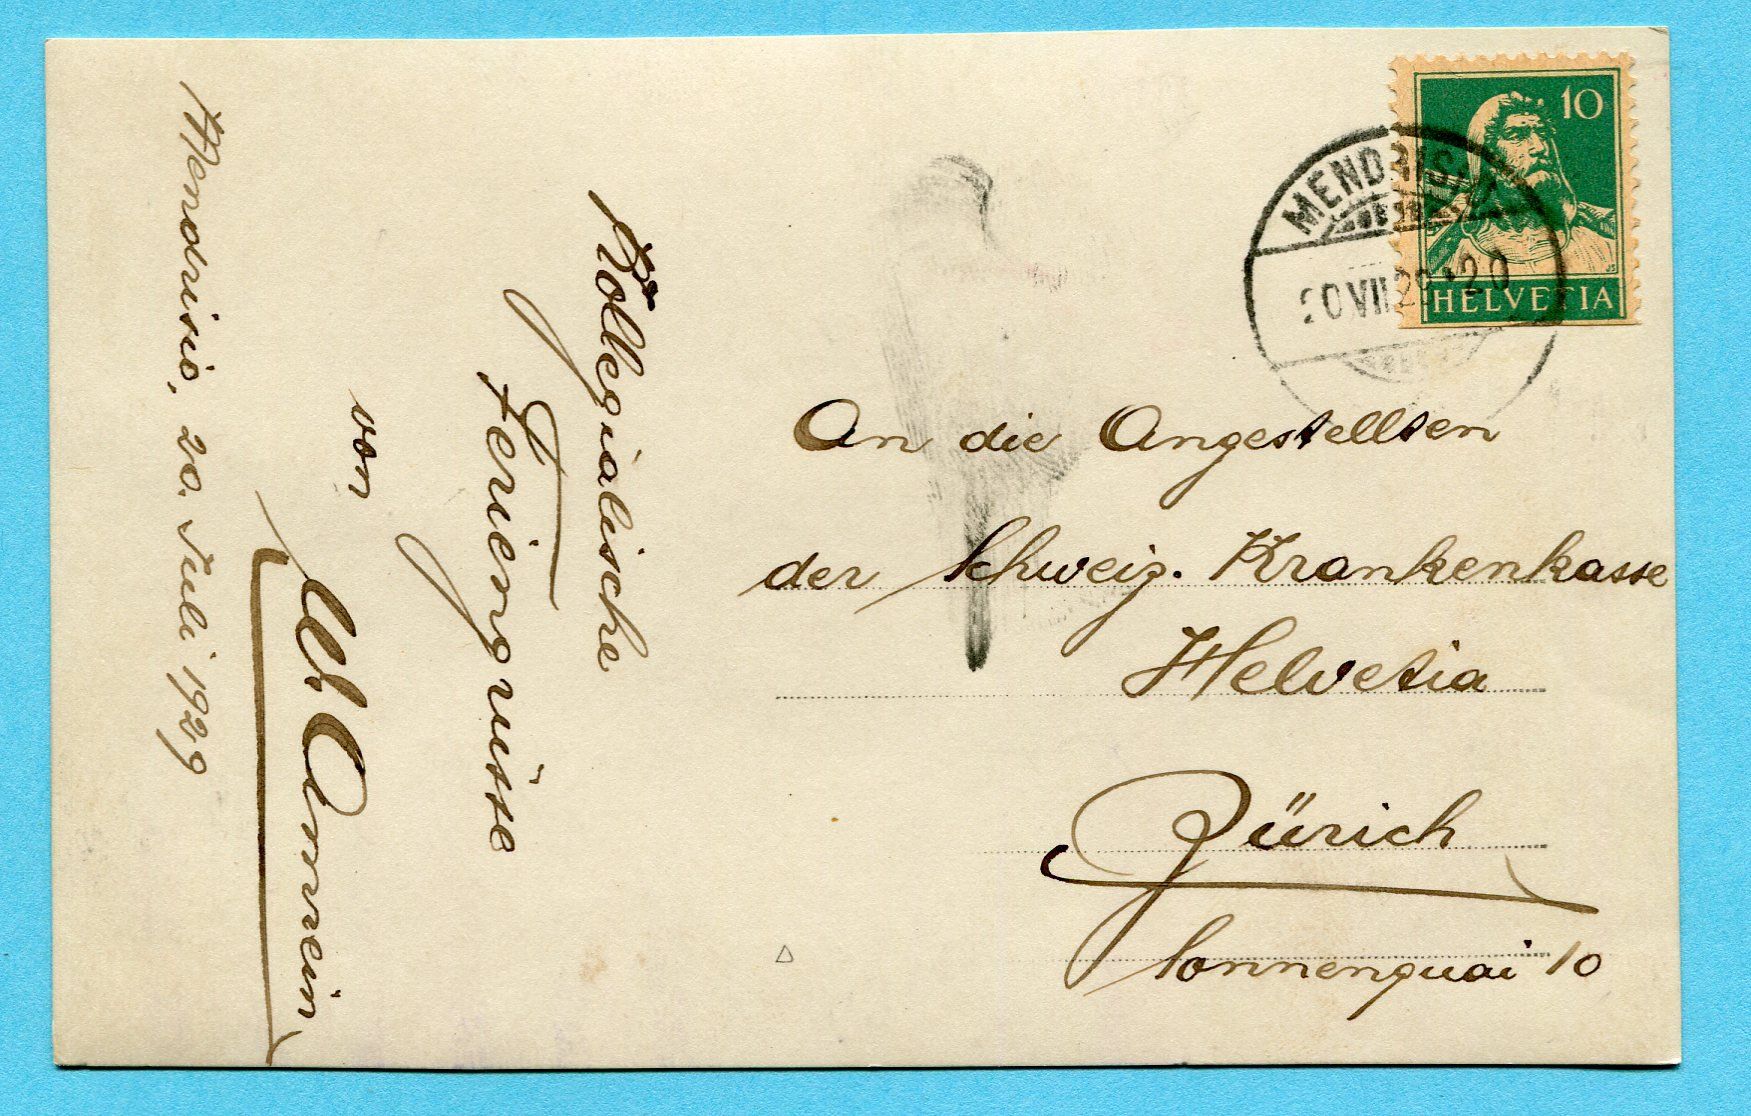 Mendrisio, 20. Juli 1929
Kollegialische
Feriengrüsse
von
W. Amrein
10
HELVETIA
MENDRISIO
20 VII 29 · 20
An die Angestellten
der Schweiz. Krankenkasse
Helvetia
Zürich
Sonnenquai 10